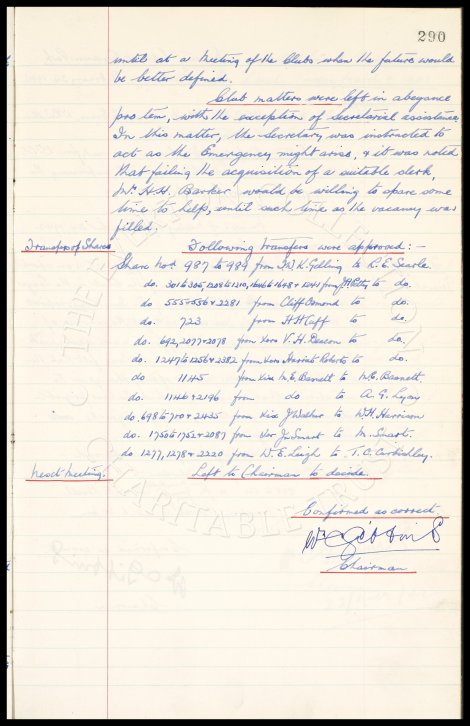 290
until at a Meeting of the Clubs when the future would
be better defined.
Club matters were left in abeyance
pro tem, with the exception of Secretarial assistance
In this matter, the Secretary was instructed to
act as the Emergency might arise, & it was noted
that failing the acquisition of a suitable clerk,
Mr. H.H. Barker would be willing to spare some
time to help, until such time as the vacancy was
filled.
Transfer of Shares Following transfers were approved:-
Share Nos 987 to 989 from K. Gelling to R.E. Searle
do. 301 to 305, 1208 to 1210, 1646 to 1648 & 1241 from to do.
do 555 to 556 & 2281 from Cliff Osmond to do.
do. 723 from H H Caff to do.
do. 692, 2077 & 2078 from Exors V.H. Deacon to do.
do. 1247 to 1256 & 2382 from Exors Harriet Roberts to do.
do 1145 from Exix M.E. Barnett to M.C. Barnett.
do. 1146 & 2196 from do to A.G. Lyay
do. 698 to 700 & 2425 from Exix J Walker to W.H. Harrison
do. 1750 to 1752 & 2087 from Exor Jn Smart to M. Smart.
do 1277, 1278 & 2220 from W.E. Leigh to T.C. Carbishley.
Next Meeting. Left to Chairman to decide.
Confirmed as correct
Chairman
THE CHARITABLE TRUST